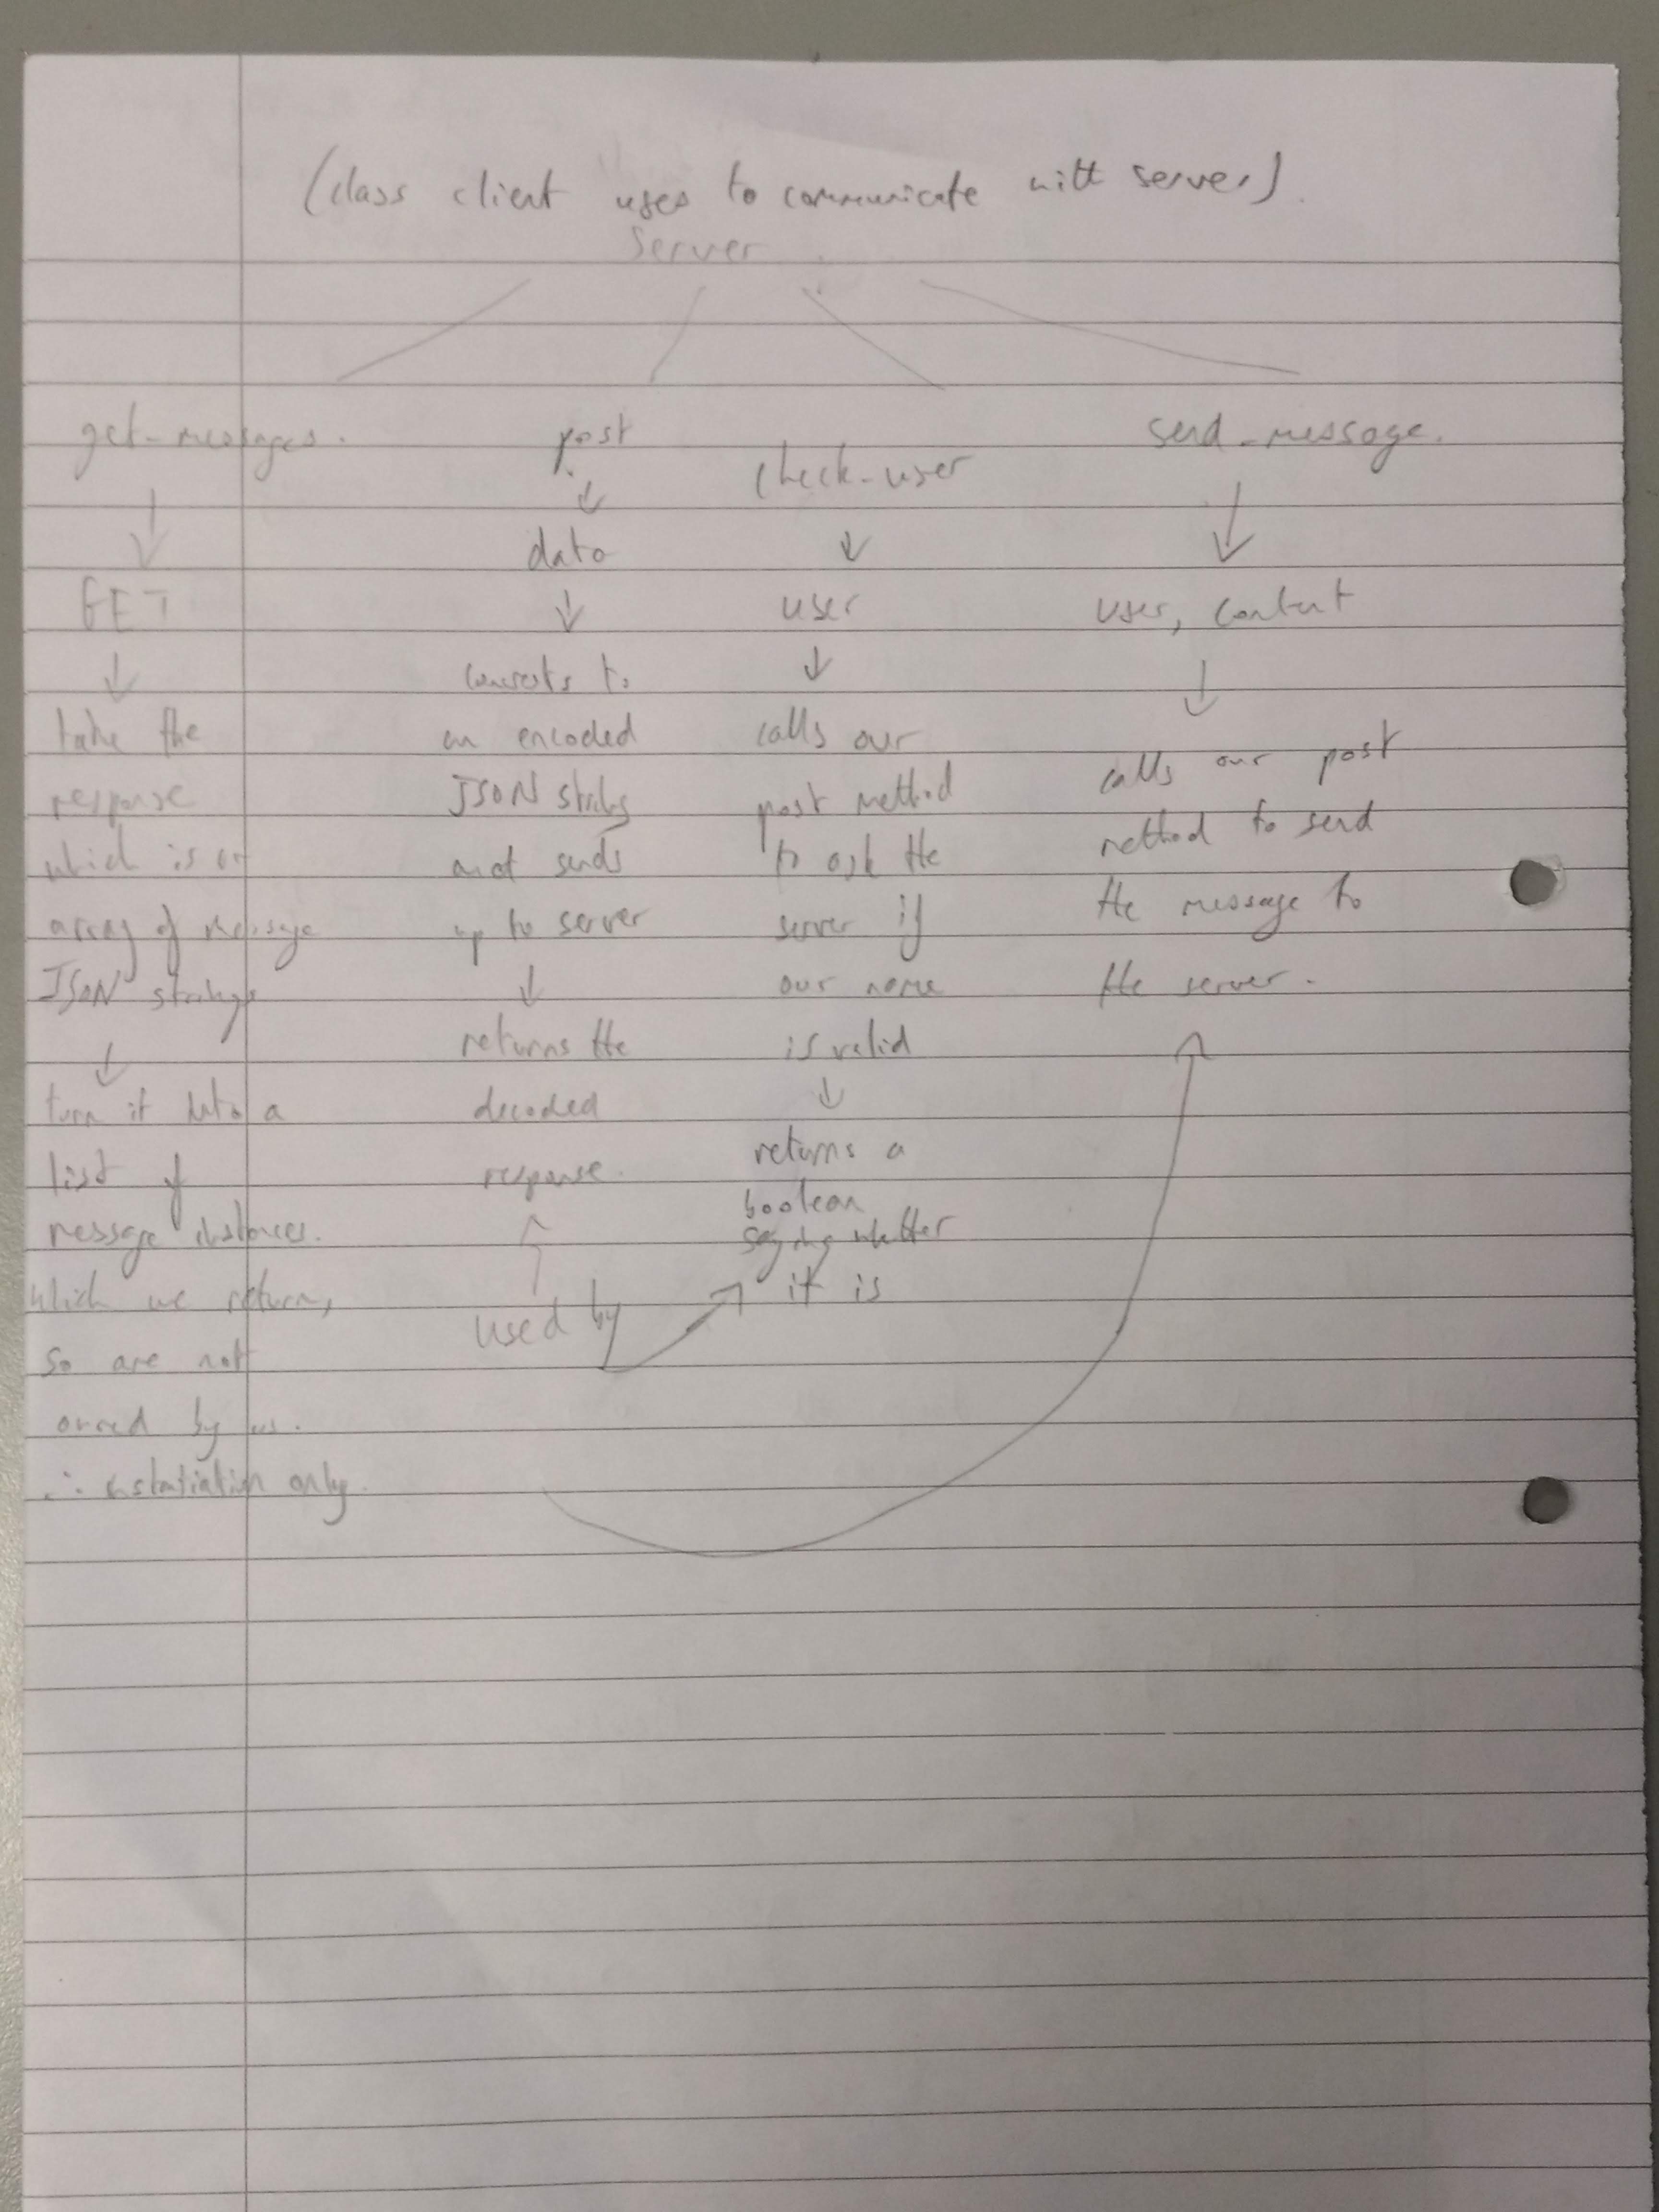 (class client uses to communicate with server)
Server
get_messages.
↓
GET
↓
take the
response
which is an
array of message
JSON strings
↓
turn it into a
list of
message instances.
which we return,
so are not
owned by us.
∴ instatiation only.
post
↓
data
↓
converts to
an encoded
JSON string
and sends
up to server
↓
returns the
decoded
response.
↑
used by
check_user
↓
user
↓
calls our
post method
to ask the
server if
our name
is valid
↓
returns a
boolean
saying whether
it is
send_message.
↓
user, content
↓
calls our post
method to send
the message to
the server.